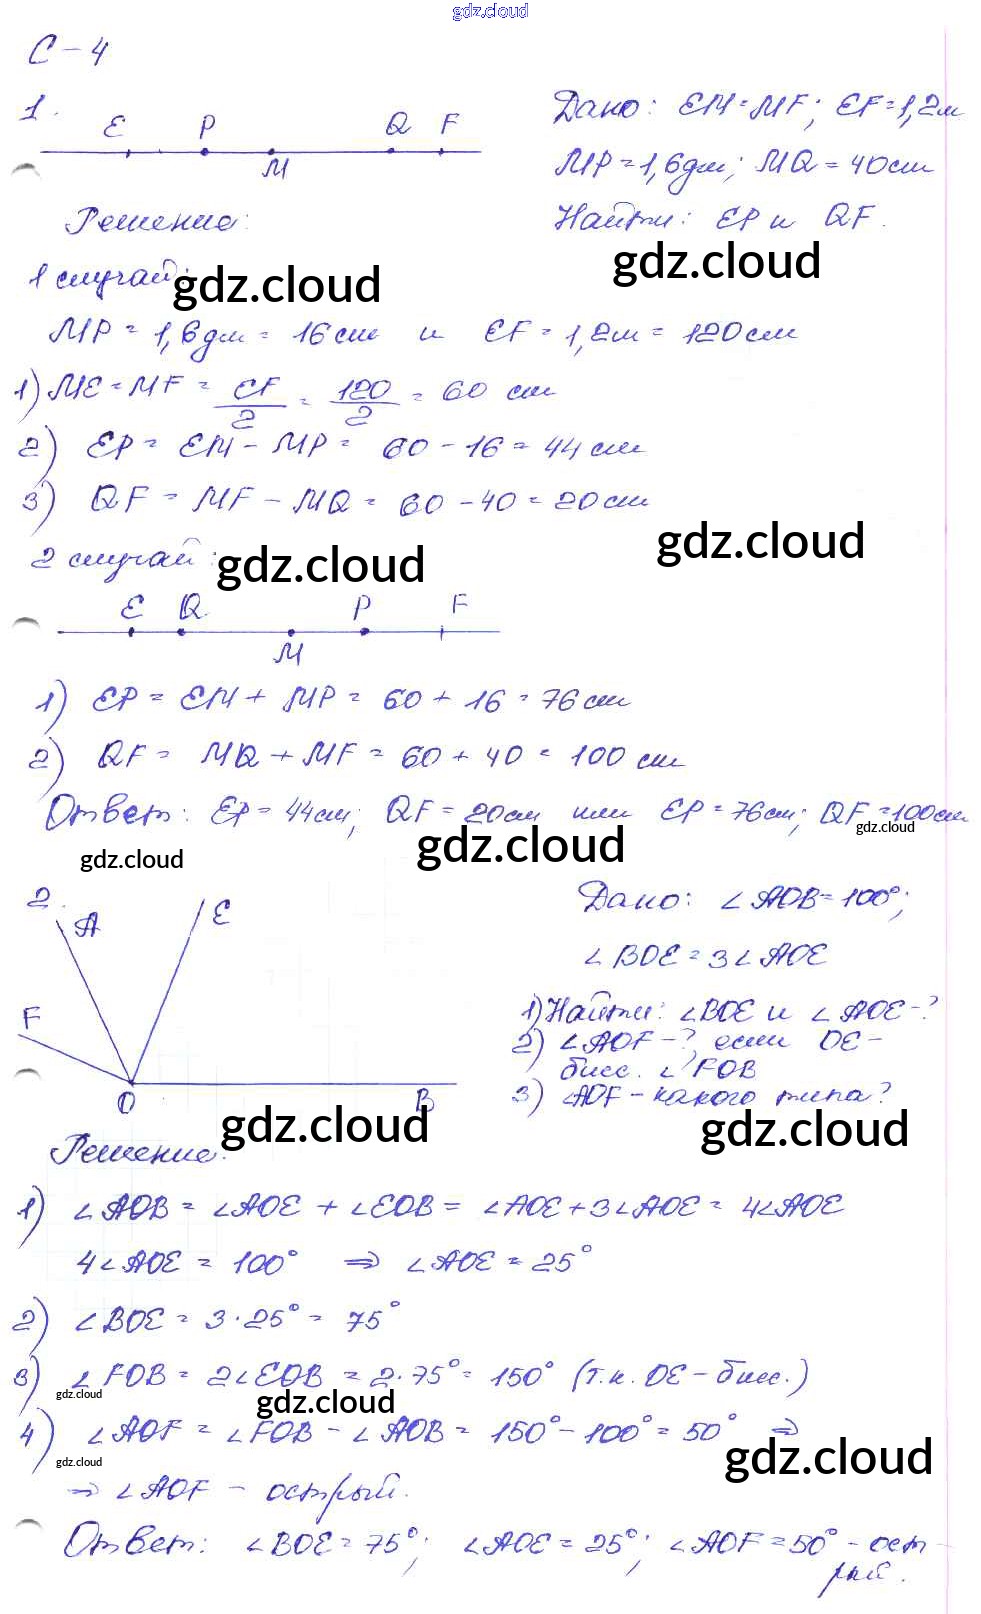 gdz.cloud
С-4
1.
E P Q F
M
Дано: EM=MF; EF=1,2м
MP=1,6дм; MQ=40см
Найти: EP и QF.
Решение:
gdz.cloud
1 случай:
gdz.cloud
MP = 1,6дм = 16см и EF = 1,2м = 120см
1) ME = MF = EF/2 = 120/2 = 60 см
2) EP = EM - MP = 60 - 16 = 44 см
3) QF = MF - MQ = 60 - 40 = 20см
gdz.cloud
2 случай:
gdz.cloud
E Q P F
M
1) EP = EM + MP = 60 + 16 = 76 см
2) QF = MQ + MF = 60 + 40 = 100 см
Ответ: EP = 44см; QF = 20см или EP = 76см; QF=100см
gdz.cloud
gdz.cloud
gdz.cloud
2.
A E
F
O B
Дано: ∠AOB=100°;
∠BOE = 3∠AOE
1) Найти: ∠BOE и ∠AOE-?
2) ∠AOF-? если OE-
бисс. ∠FOB
3) ∠AOF - какого типа?
gdz.cloud
gdz.cloud
Решение:
1) ∠AOB = ∠AOE + ∠EOB = ∠AOE + 3∠AOE = 4∠AOE
4∠AOE = 100° ⇒ ∠AOE = 25°
2) ∠BOE = 3·25° = 75°
3) ∠FOB = 2∠EOB = 2·75° = 150° (т.к. OE - бисс.)
gdz.cloud
gdz.cloud
4) ∠AOF = ∠FOB - ∠AOB = 150° - 100° = 50° ⇒
gdz.cloud
gdz.cloud
⇒ ∠AOF - острый.
Ответ: ∠BOE = 75°; ∠AOE = 25°; ∠AOF = 50° - ост-
рый.